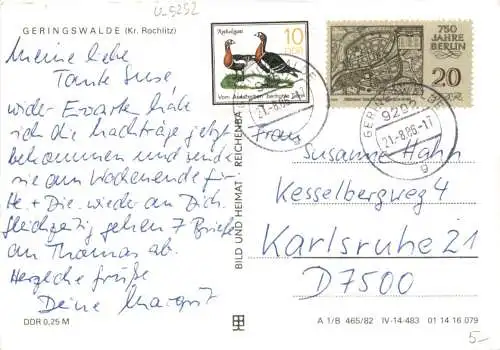 U-5252
GERINGSWALDE (Kr. Rochlitz)
Meine liebe
Tante Suse
wider Erwarten habe
ich die Nachträge jetzt
bekommen und sende
sie am Wochenende für
He. + Die. wieder an Dich.
Gleichzeitig gehen 7 Briefe
an Thomas ab.
Herzliche Grüße
Deine Margit
DDR 0,25 M
BILD UND HEIMAT · REICHENBA
Rothalsgans
10
DDR
Vom Aussterben bedrohte Tiere
750
JAHRE
BERLIN
20
DDR
GERINGSWALDE
9292
21.-8.86-17
g
Frau
Susanne Hahn
Kesselbergweg 4
Karlsruhe 21
D7500
A 1/B 465/82 IV-14-483 01 14 16 079
5-